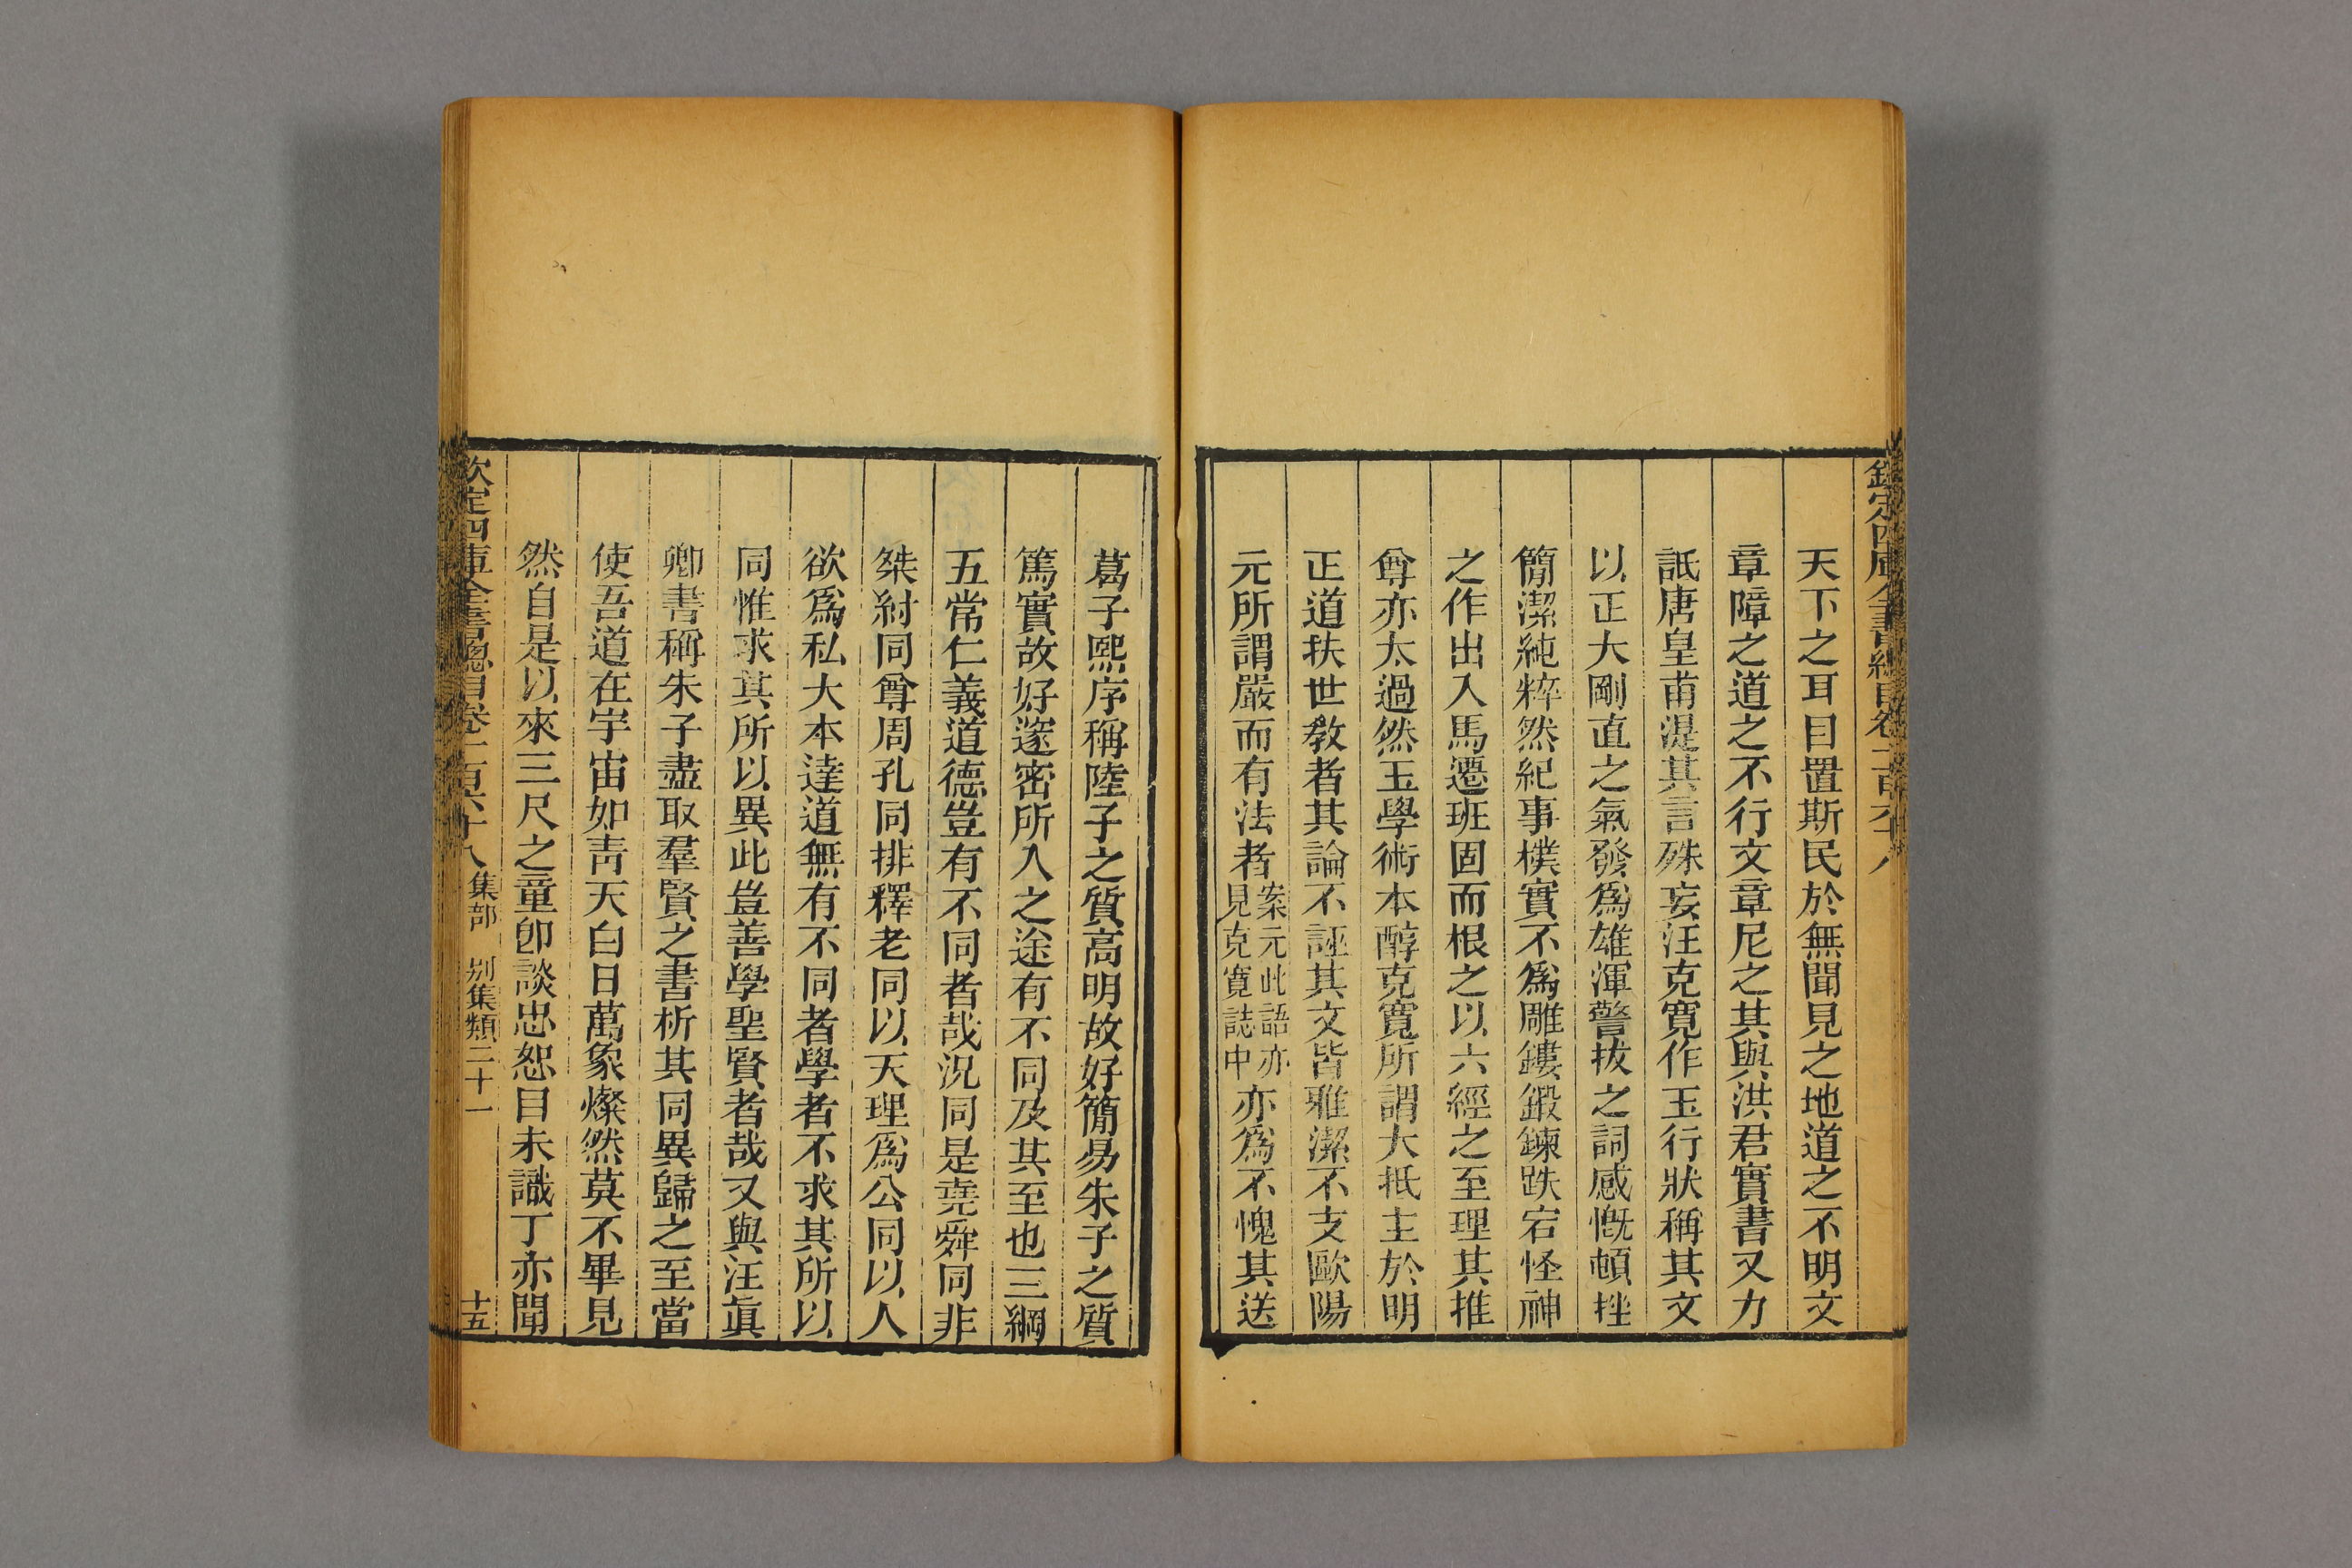 欽定四庫全書總目卷一百六十八
天下之耳目置斯民於無聞見之地道之不明文
章障之道之不行文章尼之其與洪君實書又力
詆唐皇甫湜其言殊妄汪克寛作玉行狀稱其文
以正大剛直之氣發爲雄渾警拔之詞感慨頓挫
簡潔純粹然紀事樸實不爲雕鏤鍛鍊跌宕怪神
之作出入馬遷班固而根之以六經之至理其推
尊亦太過然玉學術本醇克寛所謂大抵主於明
正道扶世敎者其論不誣其文皆雅潔不支歐陽
元所謂嚴而有法者案元此語亦見克寛誌中亦爲不愧其送
葛子熙序稱陸子之質高明故好簡易朱子之質
篤實故好邃密所入之途有不同及其至也三綱
五常仁義道德豈有不同者哉況同是堯舜同非
桀紂同尊周孔同排釋老同以天理爲公同以人
欲爲私大本達道無有不同者學者不求其所以
同惟求其所以異此豈善學聖賢者哉又與汪眞
卿書稱朱子盡取羣賢之書析其同異歸之至當
使吾道在宇宙如靑天白日萬象燦然莫不畢見
然自是以來三尺之童卽談忠恕目未識丁亦聞
欽定四庫全書總目卷一百六十八 集部 别集類二十一 十五